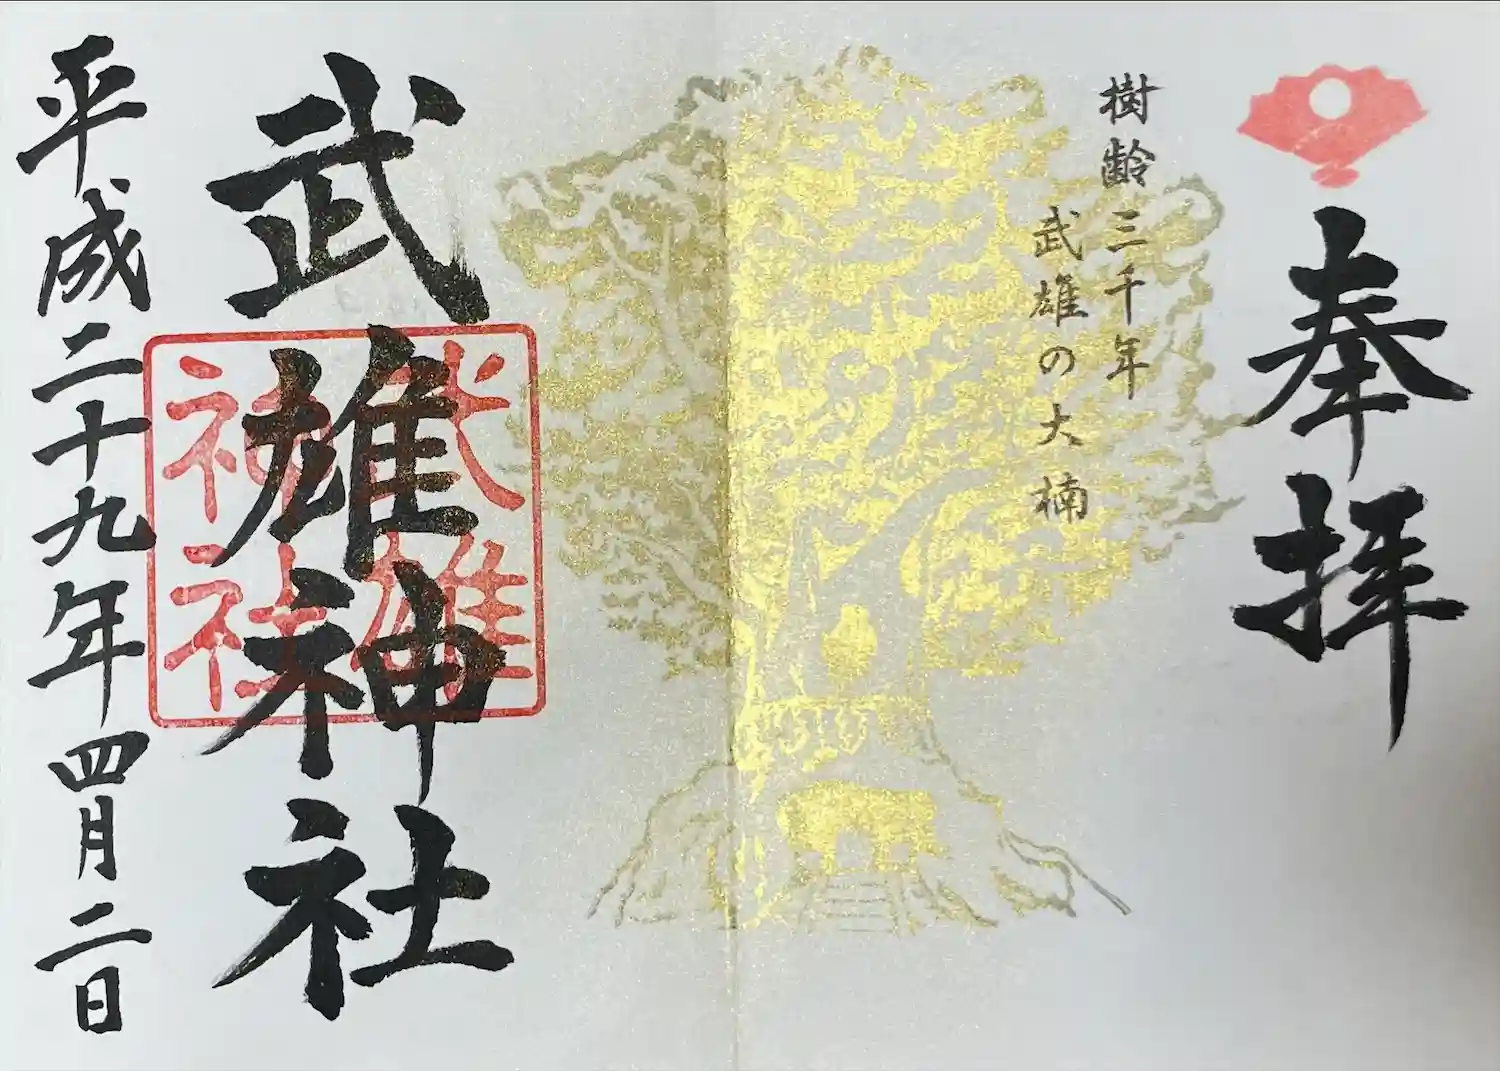 奉拝
樹齢三千年
武雄の大楠
武雄神社
武雄
神社
平成二十九年四月二日